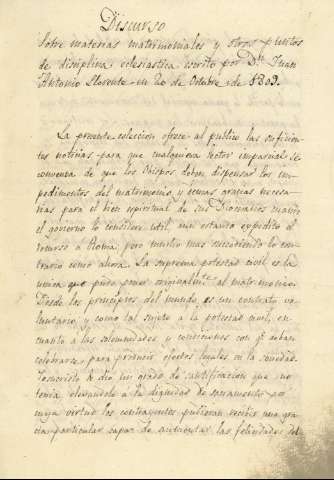 Discurso
Sobre materias matrimoniales y otros puntos
de disciplina eclesiastica escrito por Dn. Juan
Antonio Llorente en 20 de Octubre de 1809.
La presente coleccion ofrece al publico las suficien-
tes noticias para que cualquiera lector imparcial se
convenza de que los Obispos deben dispensar los im-
pedimentos del matrimonio y demas gracias necesa-
rias para el bien espiritual de sus Diocesanos cuando
el gobierno lo considere util, aun estando expedito el
recurso a Roma pero mucho mas sucediendo lo con-
trario como ahora. La suprema potestad civil es la
unica que pudo poner originalmte. al matrimonio.
Desde los principios del mundo es un contrato vo-
luntario, y como tal sujeto a la potestad civil, en
cuanto a las solemnidades y condiciones con qe. deban
celebrarse para producir efectos legales en la sociedad.
Jesucristo le dio un grado de santificacion que no
tenia elevandole a la dignidad de sacramento por
cuya virtud los contrayentes pudieran recibir una gra-
cia particular capaz de aumentar las felicidades del